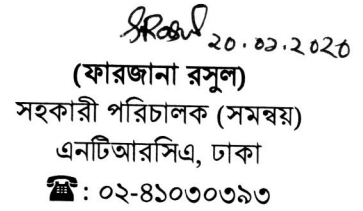 20.02.2020
(ফারজানা রসুল)
সহকারী পরিচালক (সমন্বয়)
এনটিআরসিএ, ঢাকা
☎: ০২-৪১০৩০৩৯৩